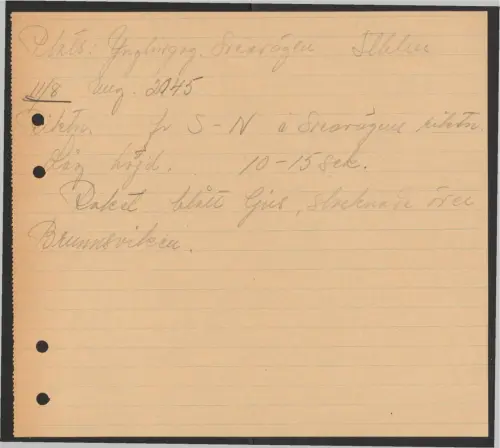 Plats: Ynglingag. Sveavägen Sthlm
11/8 Aug. 2045
Riktn. fr S-N i Sveavägens riktn.
Låg höjd. 10-15 sek.
Raket blått ljus, slocknade över
Brunnsviken.